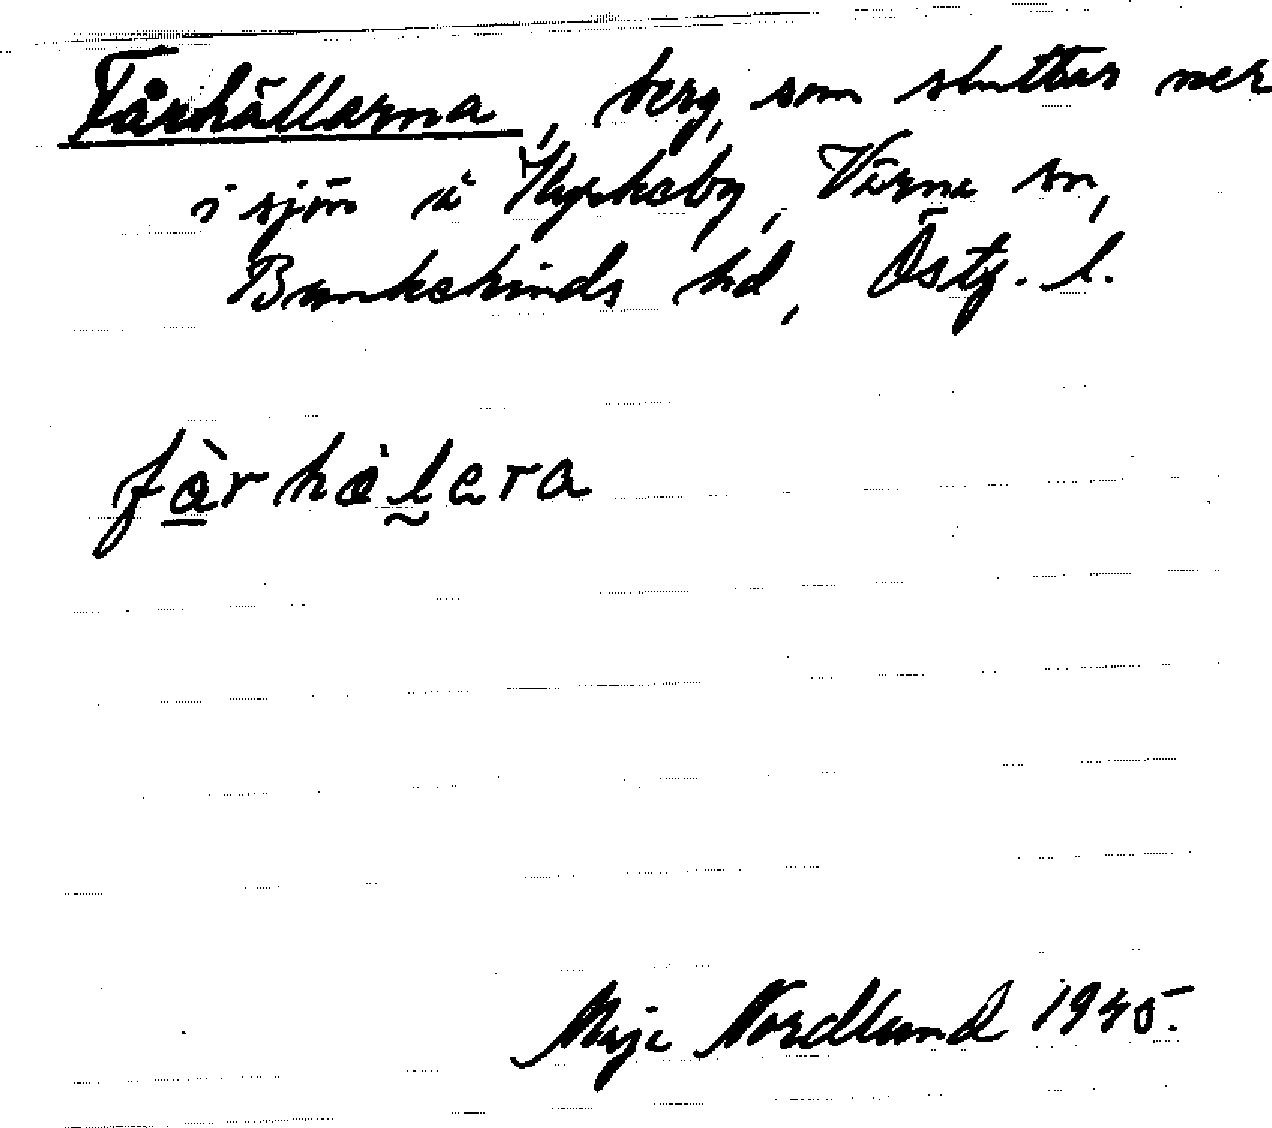 Fårhällarna, berg, som sluttar ner
i sjön å Kyrkeby, Värna sn,
Bankekinds hd, Östg. l.
fàrhälera
Maja Nordlund 1935.